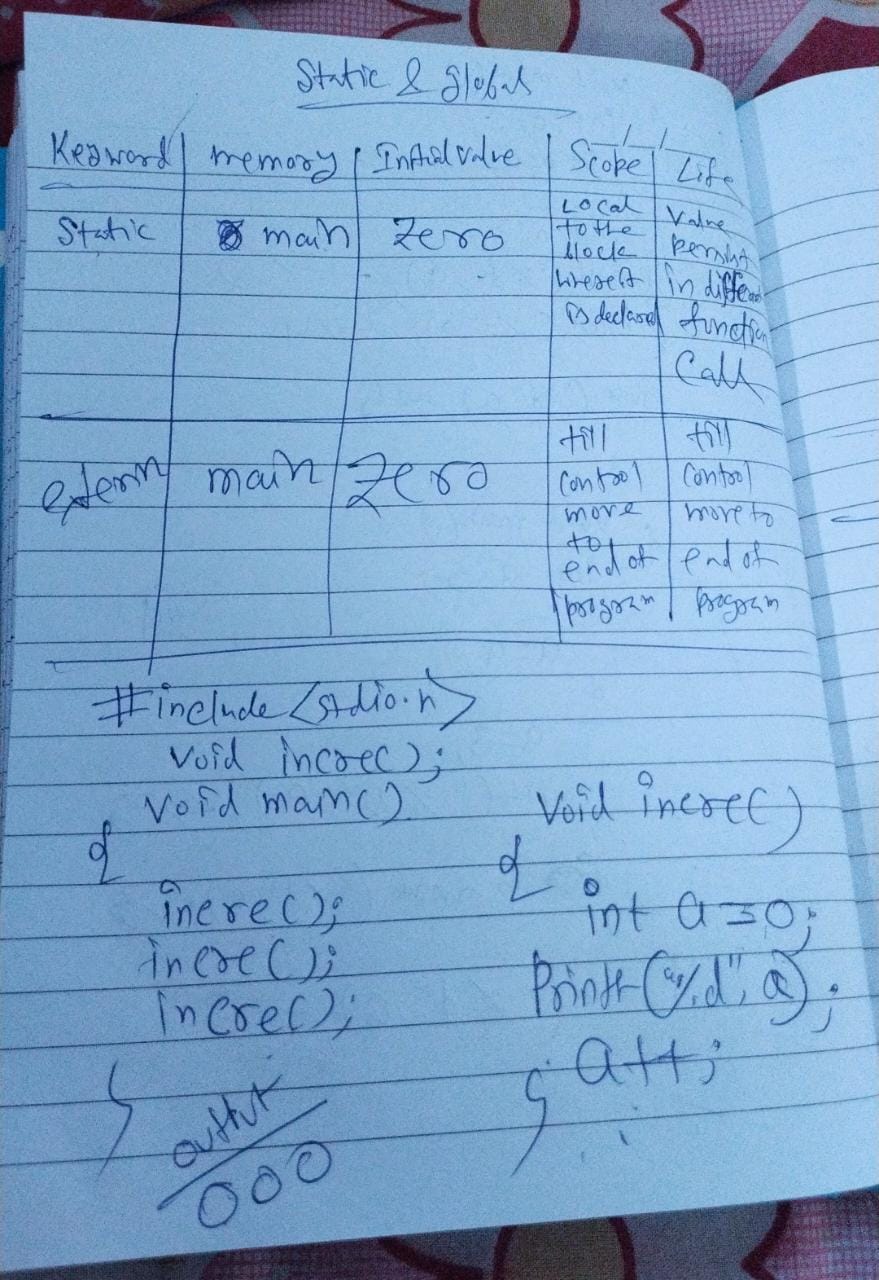 Static & global
Keyword memory Initial value Scope Life
Static main Zero
Local
to the
block
where it
is declared
Value
persist
in different
function
Call
extern main Zero
till
control
move
to
end of
program
till
control
move to
end of
program
#include <stdio.h>
void incre();
void main()
{
incre();
incre();
incre();
}
output
000
void incre()
{
int a=0;
Printf("%d", a);
a++;
}